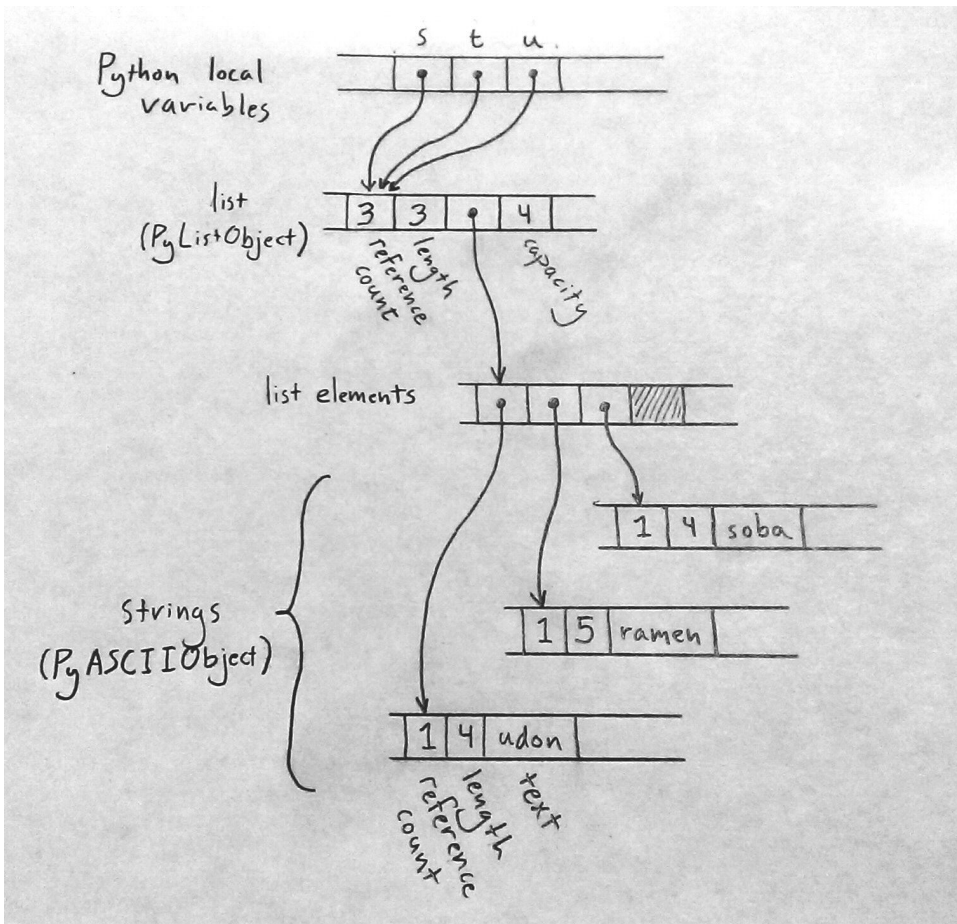 s t u
Python local
variables
list
(PyListObject)
3 3 4
reference
count
length
capacity
list elements
1 4 soba
strings
(PyASCIIObject)
1 5 ramen
1 4 udon
reference
count
length
text